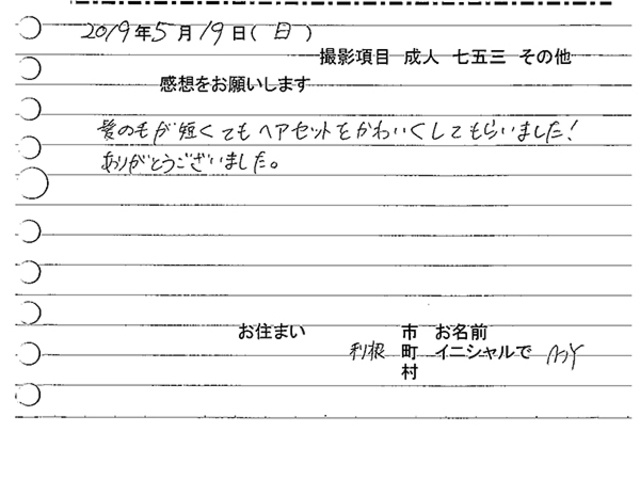 2019年5月19日(日)
撮影項目 成人 七五三 その他
感想をお願いします
髪の毛が短くてもヘアセットをかわいくしてもらいました!
ありがとうございました。
お住まい 利根 市町村 お名前 イニシャルで MY